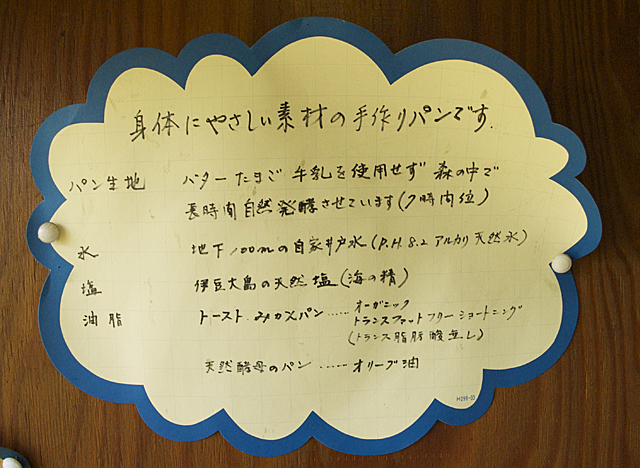 身体にやさしい素材の手作りパンです.
パン生地 バターたまご 牛乳を使用せず 森の中で
長時間自然発酵させています(7時間位)
水 地下100mの自家井戸水(P.H.8.2 アルカリ天然水)
塩 伊豆大島の天然塩(海の精)
油脂 トースト.みかくパン……オーガニック
トランスファットフリーショートニング
(トランス脂肪酸無し)
天然酵母のパン……オリーブ油
H298-03